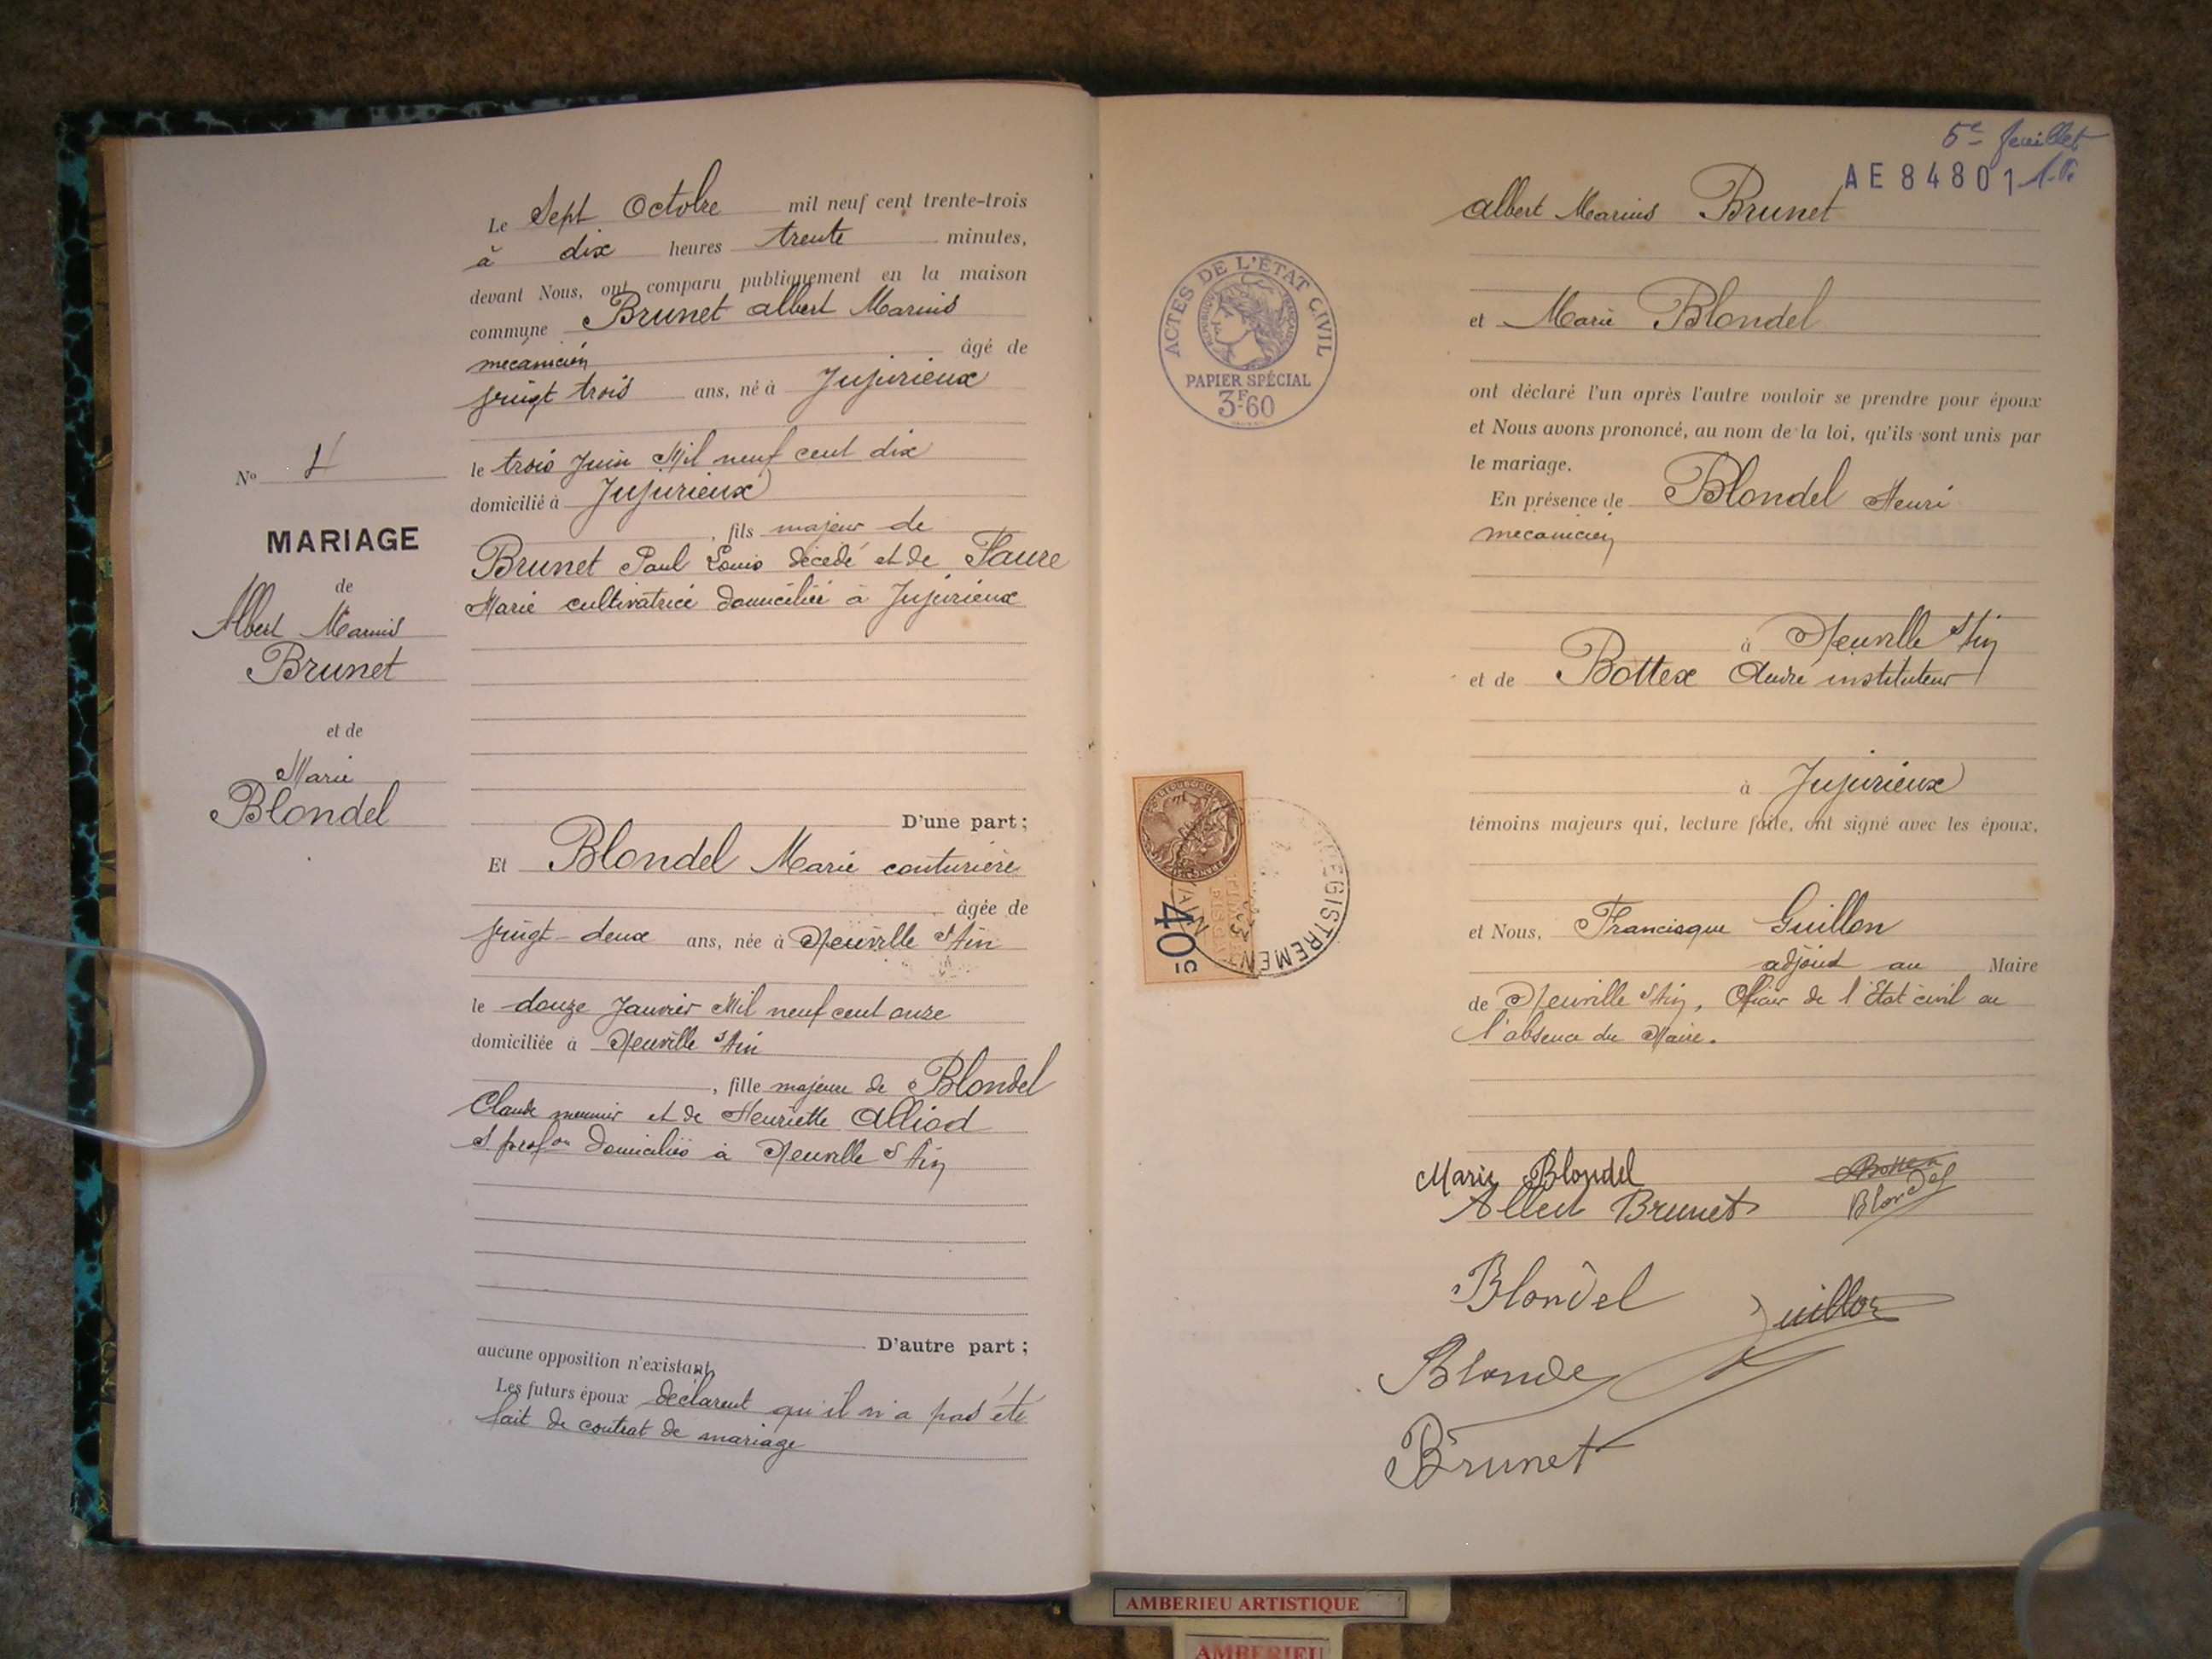 Le Sept Octobre mil neuf cent trente-trois
à dix heures trente minutes,
devant Nous, ont comparu publiquement en la maison
commune Brunet albert Marius
mécanicien âgé de
vingt trois ans, né à Jujurieux
le trois Juin Mil neuf cent dix
domicilié à Jujurieux
, fils majeur de
Brunet Paul Louis décédé et de Faure
Marie cultivatrice domiciliée à Jujurieux
D'une part;
Nº 4
MARIAGE
de
Albert Marius
Brunet
et de
Marie
Blondel
Et Blondel Marie couturière
âgée de
vingt-deux ans, née à Neuville s/Ain
le douze Janvier Mil neuf cent onze
domiciliée à Neuville s/Ain
, fille majeure de Blondel
Claude meunier et de Henriette Alliod
s. profon domiciliés à Neuville s/Ain
D'autre part;
aucune opposition n'existant,
Les futurs époux déclarent qu'il n'a pas été
fait de contrat de mariage
5e feuillet
AE 84801
albert Marius Brunet
et Marie Blondel
ont déclaré l'un après l'autre vouloir se prendre pour époux
et Nous avons prononcé, au nom de la loi, qu'ils sont unis par
le mariage.
En présence de Blondel Henri
mecanicien
à Neuville s/Ain
et de Bottex André instituteur
à Jujurieux
témoins majeurs qui, lecture faite, ont signé avec les époux,
et Nous, Francisque Guillon
adjoint au Maire
de Neuville s/Ain, Officier de l'Etat civil en
l'absence du Maire.
Marie Blondel
Bottex
Albert Brunet
Blondel
Blondel
Guillon
Blondel
Brunet
ACTES DE L'ÉTAT CIVIL
RÉPUBLIQUE FRANÇAISE
PAPIER SPÉCIAL
3F.60
40c
ENREGISTREMENT
AIN
AMBERIEU ARTISTIQUE
AMBERIEU